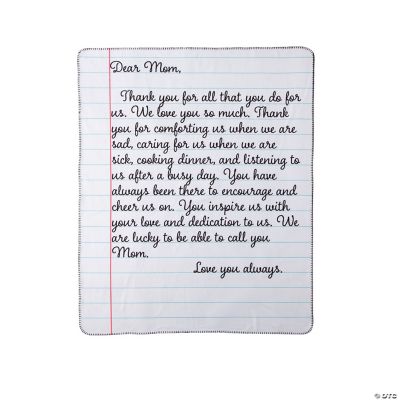 Dear Mom,
Thank you for all that you do for
us. We love you so much. Thank
you for comforting us when we are
sad, caring for us when we are
sick, cooking dinner, and listening to
us after a busy day. You have
always been there to encourage and
cheer us on. You inspire us with
your love and dedication to us. We
are lucky to be able to call you
Mom.
Love you always.
© OTC